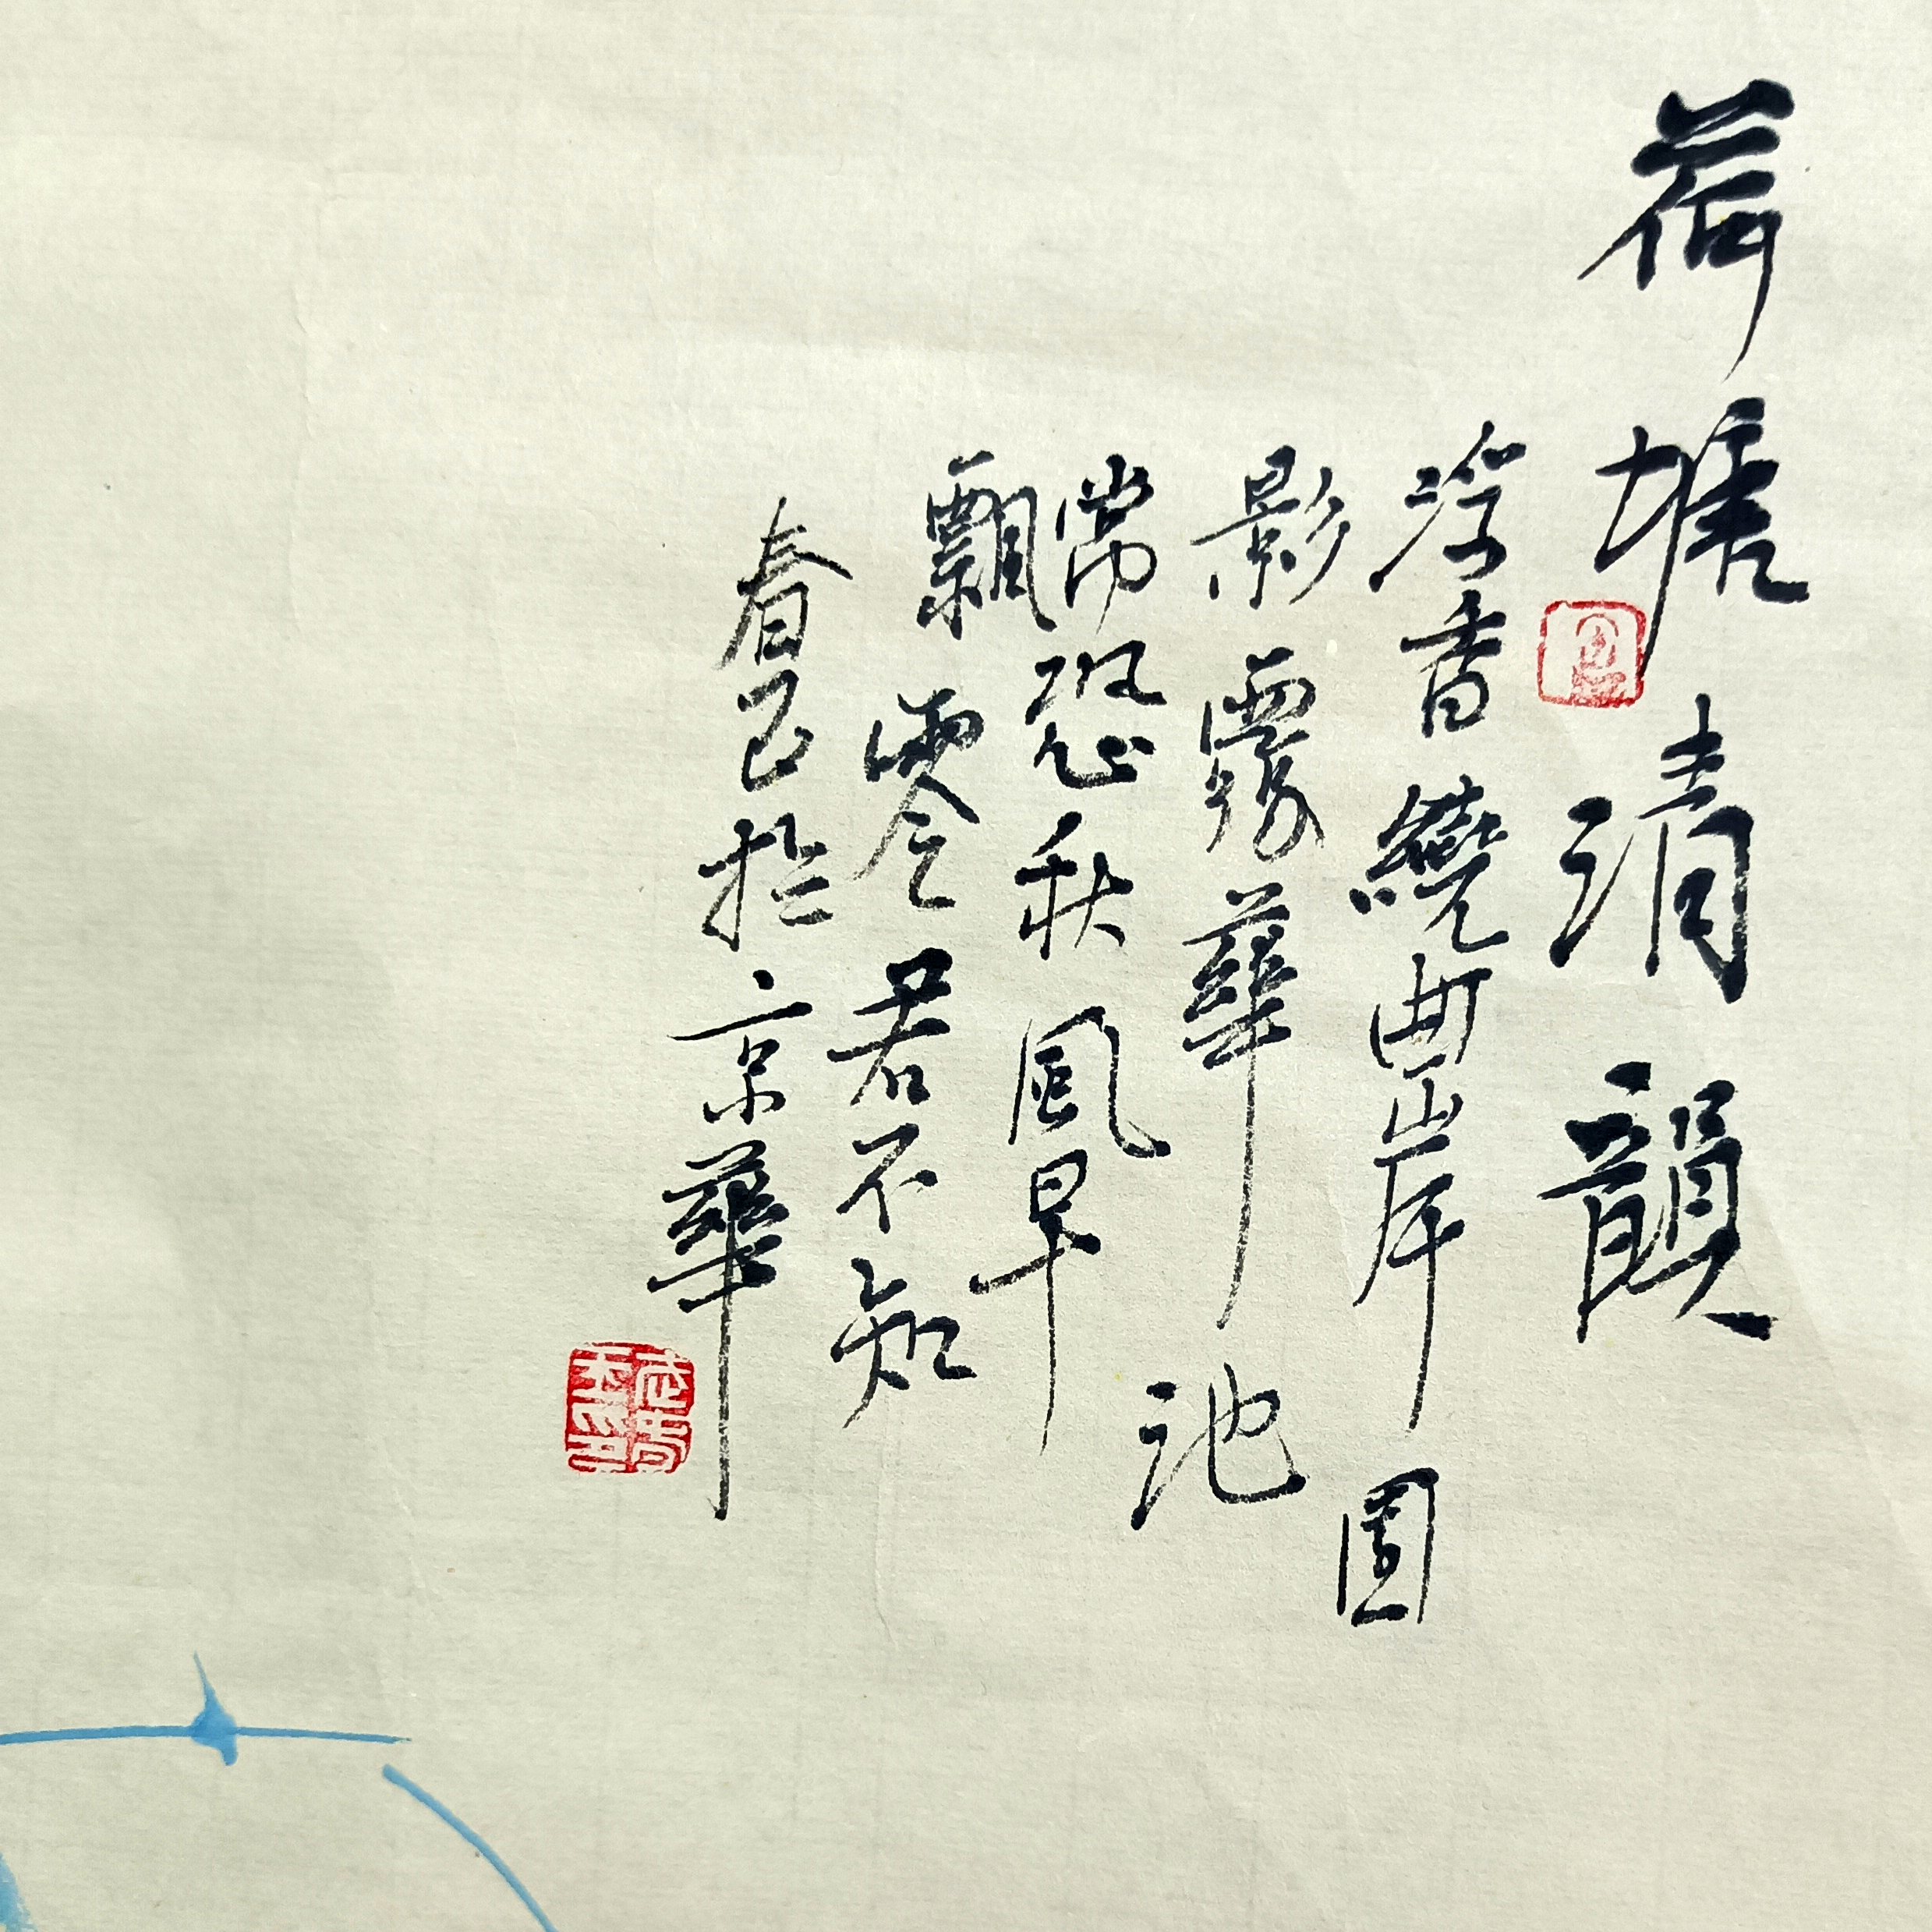 荷塘清韻
浮香繞曲岸圓
影覆華池
常恐秋風早
飄零君不知
春 於京華